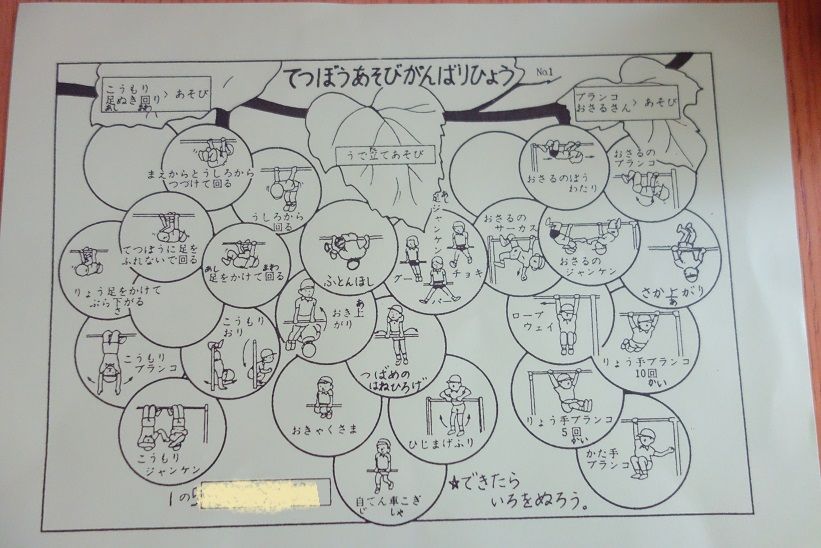 てつぼうあそびがんばりひょう No.1
こうもり
足ぬき回り＞あそび
あし まわ
ブランコ
おさるさん＞あそび
うで立てあそび
た
まえからとうしろから
つづけて回る
うしろから
回る
てつぼうに足を
ふれないで回る
足をかけて回る
あし まわ
りょう足をかけて
ぶら下がる
さ
こうもり
ブランコ
こうもり
おり
こうもり
ジャンケン
ふとんほし
足ジャンケン
あし
グー
チョキ
パー
おき上
がり
あ
つばめの
はねひろげ
おきゃくさま
ひじまげふり
自てん車こぎ
じ しゃ
おさるのぼう
わたり
おさるの
ブランコ
おさるの
サーカス
おさるの
ジャンケン
さか上がり
あ
ロープ
ウェイ
りょう手ブランコ
10回
かい
りょう手ブランコ
5回
かい
かた手
ブランコ
1の5
☆できたら
いろをぬろう。